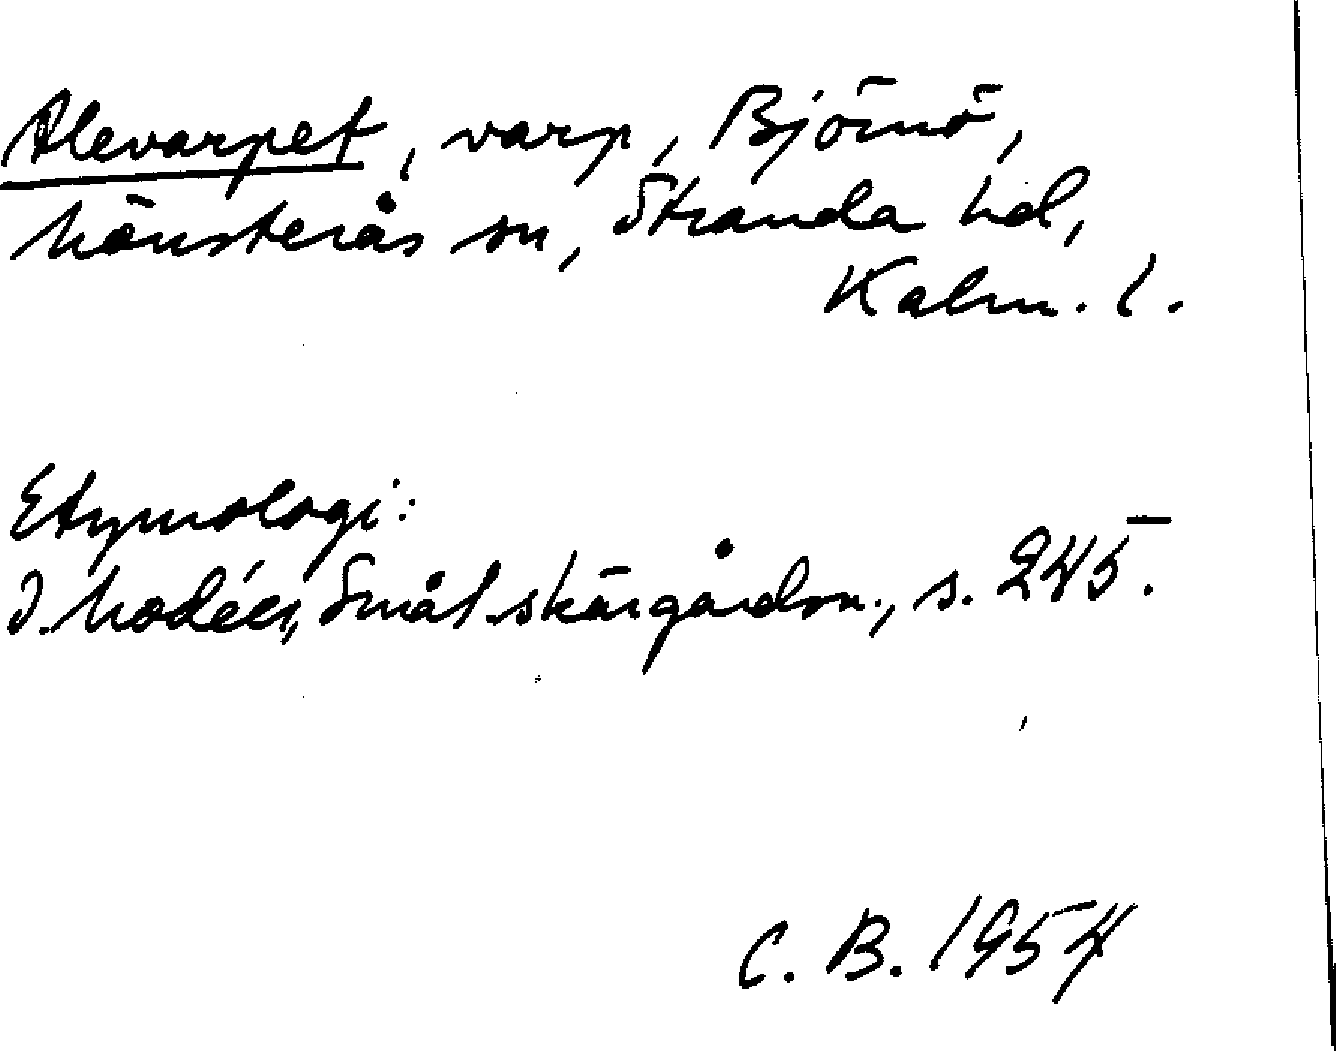 Alevarpet, varp, Björnö,
Mönsterås sn, Stranda hd,
Kalm. l.
Etymologi:
I. Modéer, Smål. skärgårdsn., s. 245.
C. B. 1954